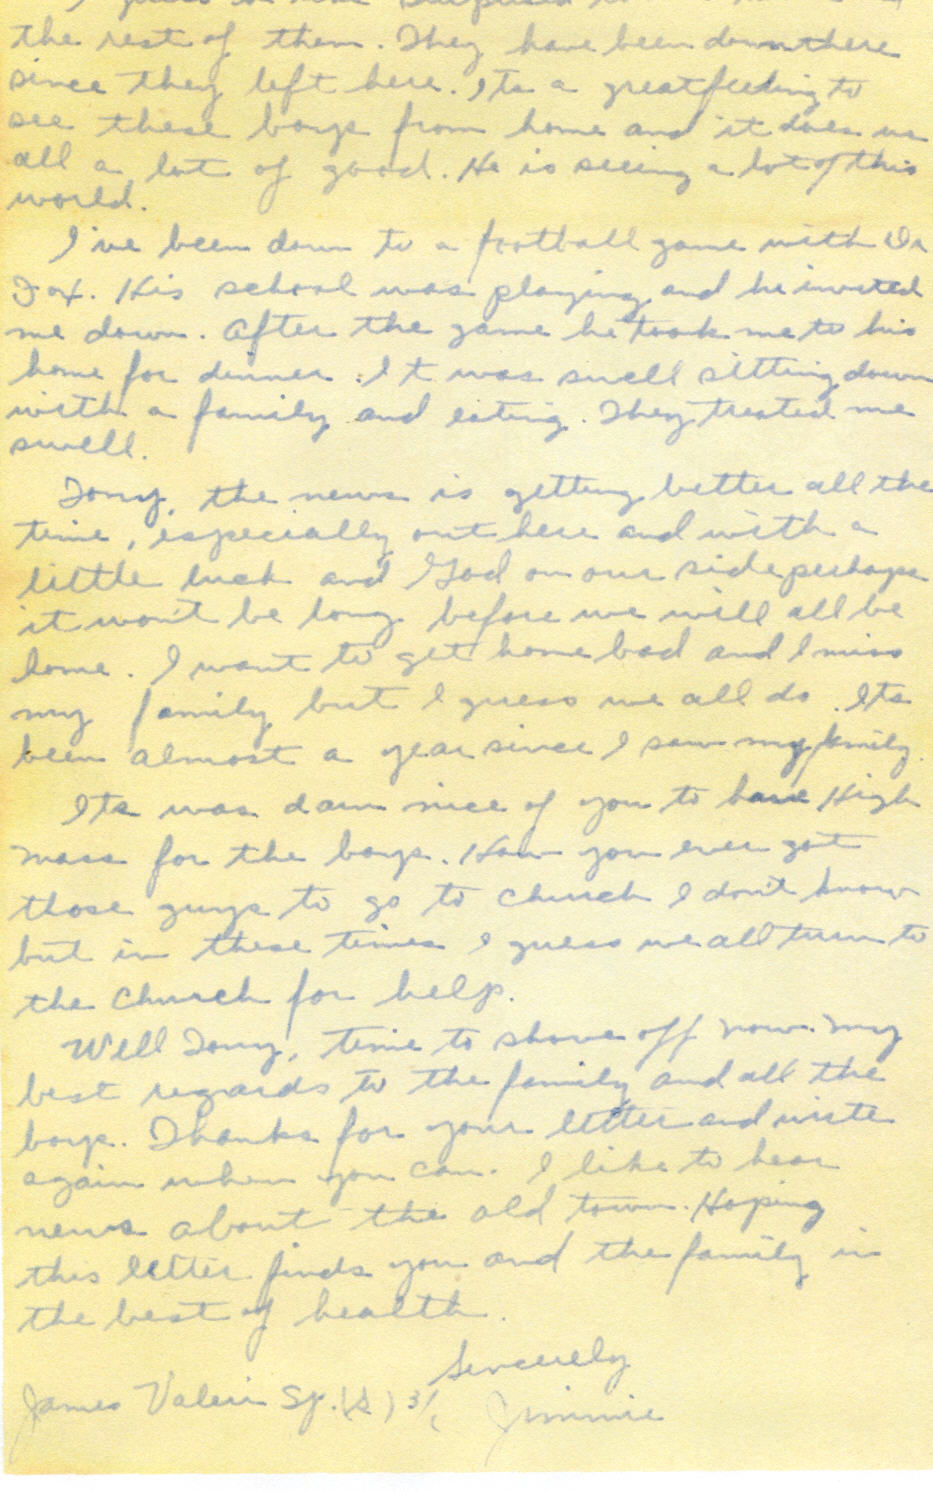 I guess
the rest of them. They have been down there
since they left here. Its a great feeling to
see these boys from home and it does us
all a lot of good. He is seeing a lot of this
world.
I've been down to a football game with Dr
Fox. His school was playing and he invited
me down. After the game he took me to his
home for dinner. It was swell sitting down
with a family and eating. They treated me
swell.
Tony, the news is getting better all the
time, especially out here and with a
little luck and God on our side perhaps
it won't be long before we will all be
home. I want to get home bad and I miss
my family but I guess we all do. Its
been almost a year since I saw my family.
Its was darn nice of you to have High
mass for the boys. How you ever got
those guys to go to church I don't know
but in these times I guess we all turn to
the church for help.
Well Tony, time to shove off now. My
best regards to the family and all the
boys. Thanks for your letter and write
again when you can. I like to hear
news about the old town. Hoping
this letter finds you and the family in
the best of health.
Sincerely
James Valeri Sp. (S) 3/c Jimmie